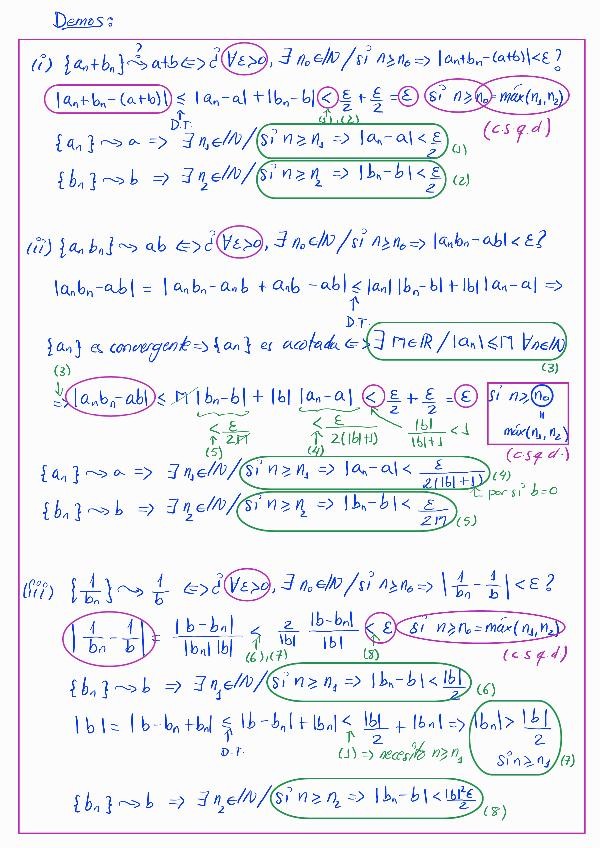 Demos:
(i) {aₙ+bₙ} ⤳? a+b ⟺ ¿∀ε>0, ∃ n₀∈ℕ / si n≥n₀ ⟹ |aₙ+bₙ-(a+b)|<ε?
|aₙ+bₙ-(a+b)| ≤ |aₙ-a|+|bₙ-b| < ε/2 + ε/2 = ε si n≥n₀=máx(n₁,n₂)
↑ D.T. ↑ (1),(2) (c.s.q.d)
{aₙ} ⤳ a ⟹ ∃ n₁∈ℕ / si n≥n₁ ⟹ |aₙ-a|<ε/2 (1)
{bₙ} ⤳ b ⟹ ∃ n₂∈ℕ / si n≥n₂ ⟹ |bₙ-b|<ε/2 (2)
(ii) {aₙbₙ} ⤳ ab ⟺ ¿∀ε>0, ∃ n₀∈ℕ / si n≥n₀ ⟹ |aₙbₙ-ab|<ε?
|aₙbₙ-ab| = |aₙbₙ-aₙb + aₙb-ab| ≤ |aₙ||bₙ-b|+|b||aₙ-a| ⟹
↑ D.T.
{aₙ} es convergente ⟹ {aₙ} es acotada ⟺ ∃ M∈ℝ / |aₙ|≤M ∀n∈ℕ
(3) (3)
↓
⟹ |aₙbₙ-ab| ≤ M |bₙ-b| + |b| |aₙ-a| < ε/2 + ε/2 = ε si n≥n₀
< ε/2M < ε/2(|b|+1) |b|/|b|+1 < 1 = máx(n₁,n₂)
↑ (5) ↑ (4) (c.s.q.d.)
{aₙ} ⤳ a ⟹ ∃ n₁∈ℕ / si n≥n₁ ⟹ |aₙ-a| < ε/2(|b|+1) (4)
↑ por si b=0
{bₙ} ⤳ b ⟹ ∃ n₂∈ℕ / si n≥n₂ ⟹ |bₙ-b| < ε/2M (5)
(iii) {1/bₙ} ⤳ 1/b ⟺ ¿∀ε>0, ∃ n₀∈ℕ / si n≥n₀ ⟹ |1/bₙ - 1/b|<ε?
|1/bₙ - 1/b| = |b-bₙ|/|bₙ||b| ≤ 2/|b| |b-bₙ|/|b| < ε si n≥n₀=máx(n₁,n₂)
↑ (6),(7) ↑ (8) (c.s.q.d)
{bₙ} ⤳ b ⟹ ∃ n₁∈ℕ / si n≥n₁ ⟹ |bₙ-b|<|b|/2 (6)
|b| = |b-bₙ+bₙ| ≤ |b-bₙ|+|bₙ| < |b|/2 + |bₙ| ⟹ |bₙ| > |b|/2
↑ D.T. ↑ (1) ⟹ necesito n≥n₁ si n≥n₁ (7)
{bₙ} ⤳ b ⟹ ∃ n₂∈ℕ / si n≥n₂ ⟹ |bₙ-b|<|b|²ε/2 (8)